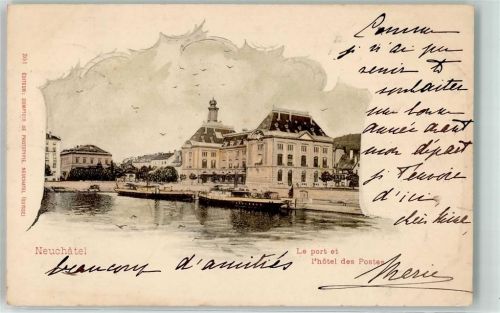 201 EDITEUR: COMPTOIR DE PHOTOTYPIE, NEUCHATEL (SUISSE)
Comme
je n'ai pu
venir te
souhaiter
une bonne
année avant
mon départ
je t'envoie
d'ici
Neuchâtel
Le port et
l'hôtel des Postes
beaucoup d'amitiés
Marie